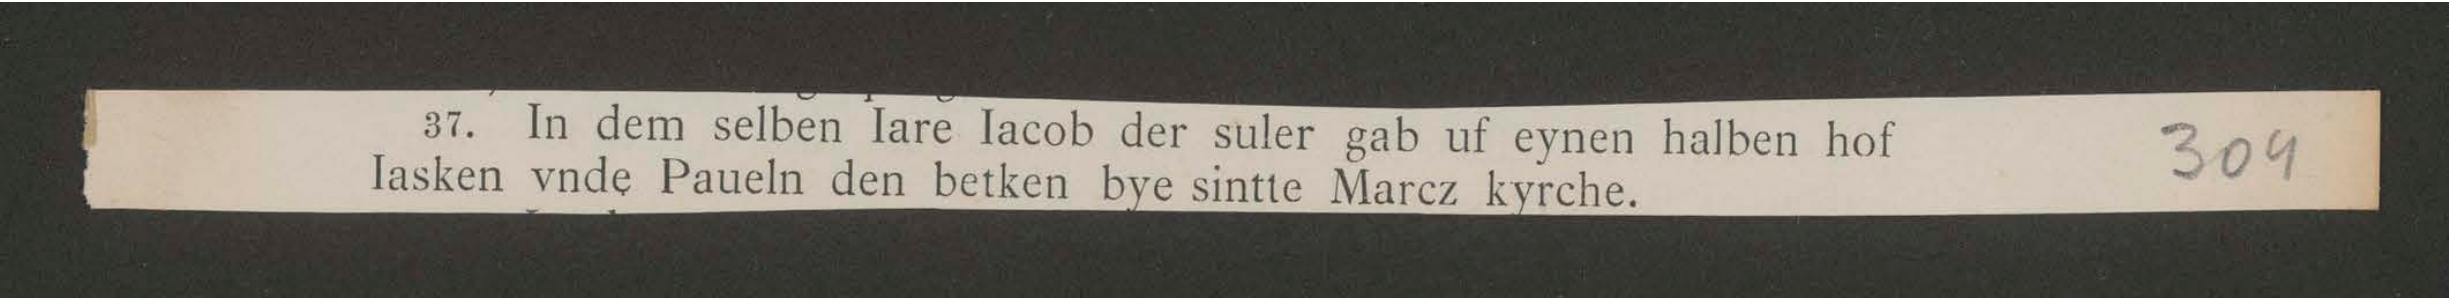 37. In dem selben Iare Iacob der suler gab uf eynen halben hof 304
Iasken vnde Paueln den betken bye sintte Marcz kyrche.